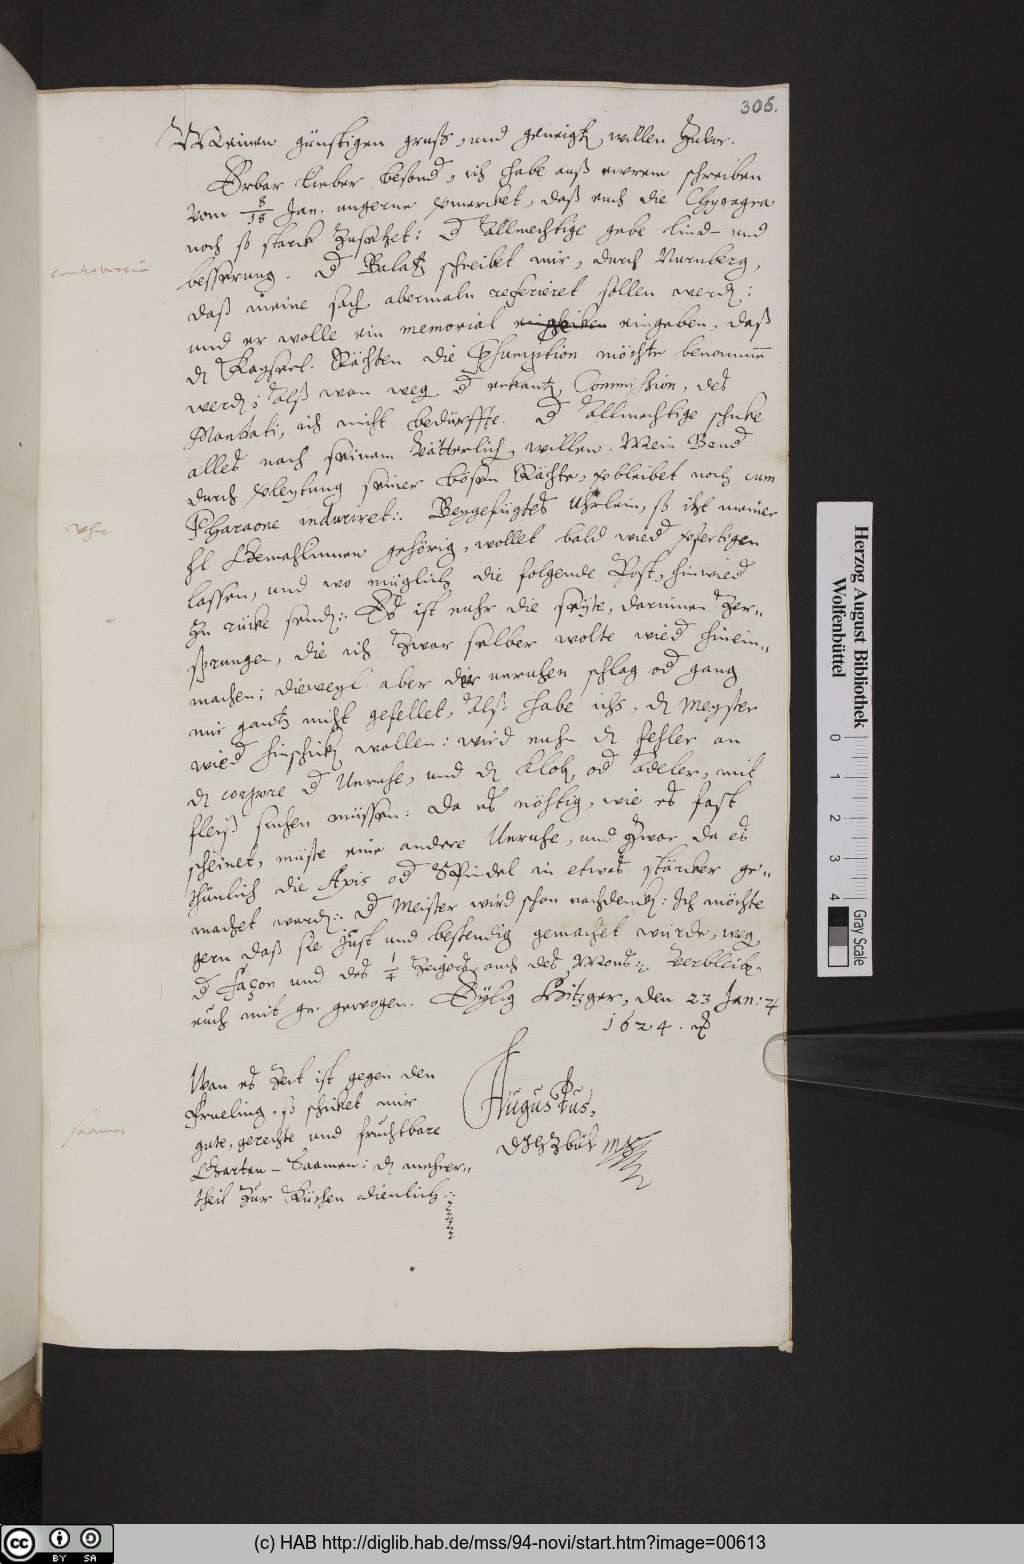 305.
Meinen günstigen gruß, und geneigtẽ willen Zuvor.
Erbar Lieber besond, ich habe auß ewrem schreiben
vom 8/18 Jan. ungerne vmercket, daß euch die Chyragra
noch so starck zusetzet: D Allmechtige gebe lind- und
controversia
besserung. D Balatẽ schreibet mir, durch Nurnberg,
daß meine sach abermaln referieret sollen werdẽ:
und er wolle ein memorial eingeben, daß
dẽ Kayserl. Rächten die Psumption möchte benommẽ
werdẽ; Alß wan weg d erkantẽ Commißion, des
Mandati, ich nicht bedürffte. D Allmechtige schicke
alles nach seinem Vätterlichẽ willen. Mein
durch vleytung seiner bösen Rächte, vbleibet noch cum
Uhr
Pharaone induriret:. Beygefügtes Uhrlein, so itzt meiner
hl Gemahlinnen gehörig, wollet bald wied vfertigen
lassen, und wo müglich die folgende Post, hinwied
zu rücke sendẽ:. Es ist nuhr die seyte, darinnen Zer-
sprungen, die ich Zwar selber wolte wied hinein-
machen; dieweyl aber der unruhen schlag od gang
mir gantz nicht gefellet, Alß habe ichs, dẽ Meyster
wied hinschickẽ wollen: wird nuhn dẽ fehler an
dẽ corpore d Unruhe, und dẽ Klobẽ od Adeler, mit
fleiß suchen müssen: Da es nöhtig, wie es fast
scheinet, müste eine andere Unruhe, und Zwar da es
thünlich die Axis od Spindel in etwas stärcker ge-
machet werdẽ:. D Meister wird schon nachdenckẽ: Ich möchte
gern daß sie just und bestendig gemachet würde, wegẽ
d façon und des 1/4 Zeigers, auch des Mons:. Verbleibẽ
euch mit gn: gewogen. Eylig Hitzger, den 23 Jan:
1624.
Wan es Zeit ist gegen den
Frueling, so schicket mir
gute, gerechte und fruchtbare
Saamen
Garten-Saamen: dẽ mehrer-
theil zur Küchen dienlich:.
Augustus,
DJHZBuL mp
Herzog August Bibliothek
Wolfenbüttel
0 1 2 3 4
Gray Scale
cc BY SA
(c) HAB http://diglib.hab.de/mss/94-novi/start.htm?image=00613